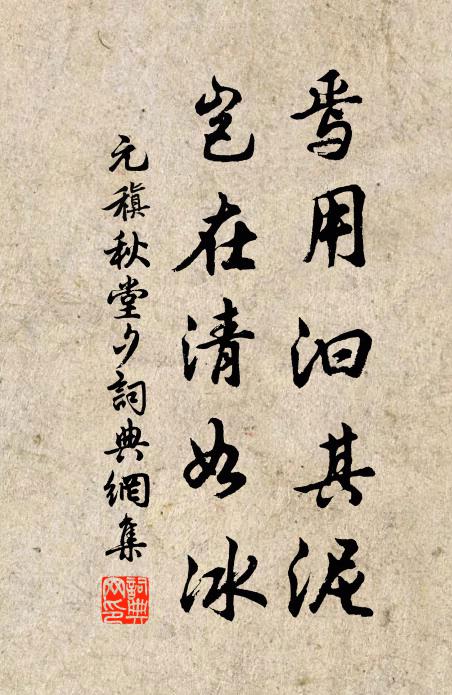 焉用汩其泥
豈在清如冰
元稹秋堂夕詞典網集
詞典網印